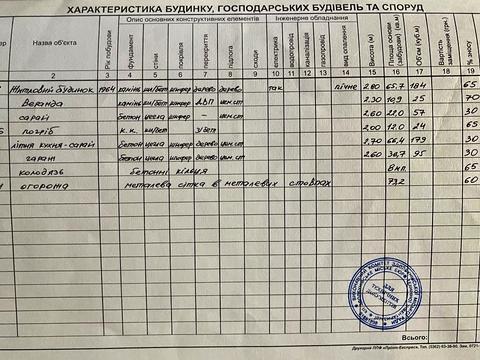 ХАРАКТЕРИСТИКА БУДИНКУ, ГОСПОДАРСЬКИХ БУДІВЕЛЬ ТА СПОРУД
Назва об'єкта Рік побудови Опис основних конструктивних елементів Інженерне обладнання Висота (м) Площа основи (забудови) (кв.м) Об'єм (куб.м) Вартість заміщення (грн.) % зносу
фундамент стіни покрівля перекриття підлога сходи електрика водопровід каналізація газопровід вид опалення
2 3 4 5 6 7 8 9 10 11 12 13 14 15 16 17 18 19
Житловий будинок 1964 камінь шифер дерево дерево так пічне 2.80 65.7 184 65
Веранда камінь шифер ДВП цем.ст 2.30 10.9 25 70
сарай бетон цегла шифер – цем.ст 2.60 22.0 57 30
погріб к.к. з/бет 2.00 12.0 24 65
літня кухня-сарай бетон цегла шифер дерево цем.ст 2.70 66.4 179 30
гараж бетон цегла шифер дерево цем.ст 2.60 36.7 95 30
колодязь бетонні кільця 65
огорожа металева сітка в металевих стовпах 73.2 60
для технічних документів
Всього: